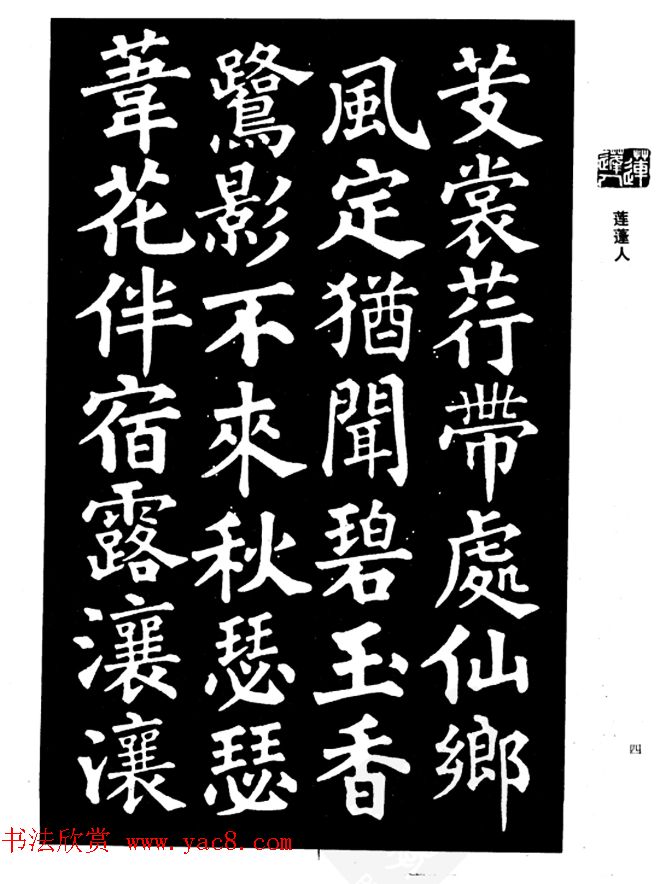 芰裳荇帶處仙鄉
風定猶聞碧玉香
鷺影不來秋瑟瑟
葦花伴宿露瀼瀼
蓮蓬人
莲蓬人
四
书法欣赏 www.yac8.com